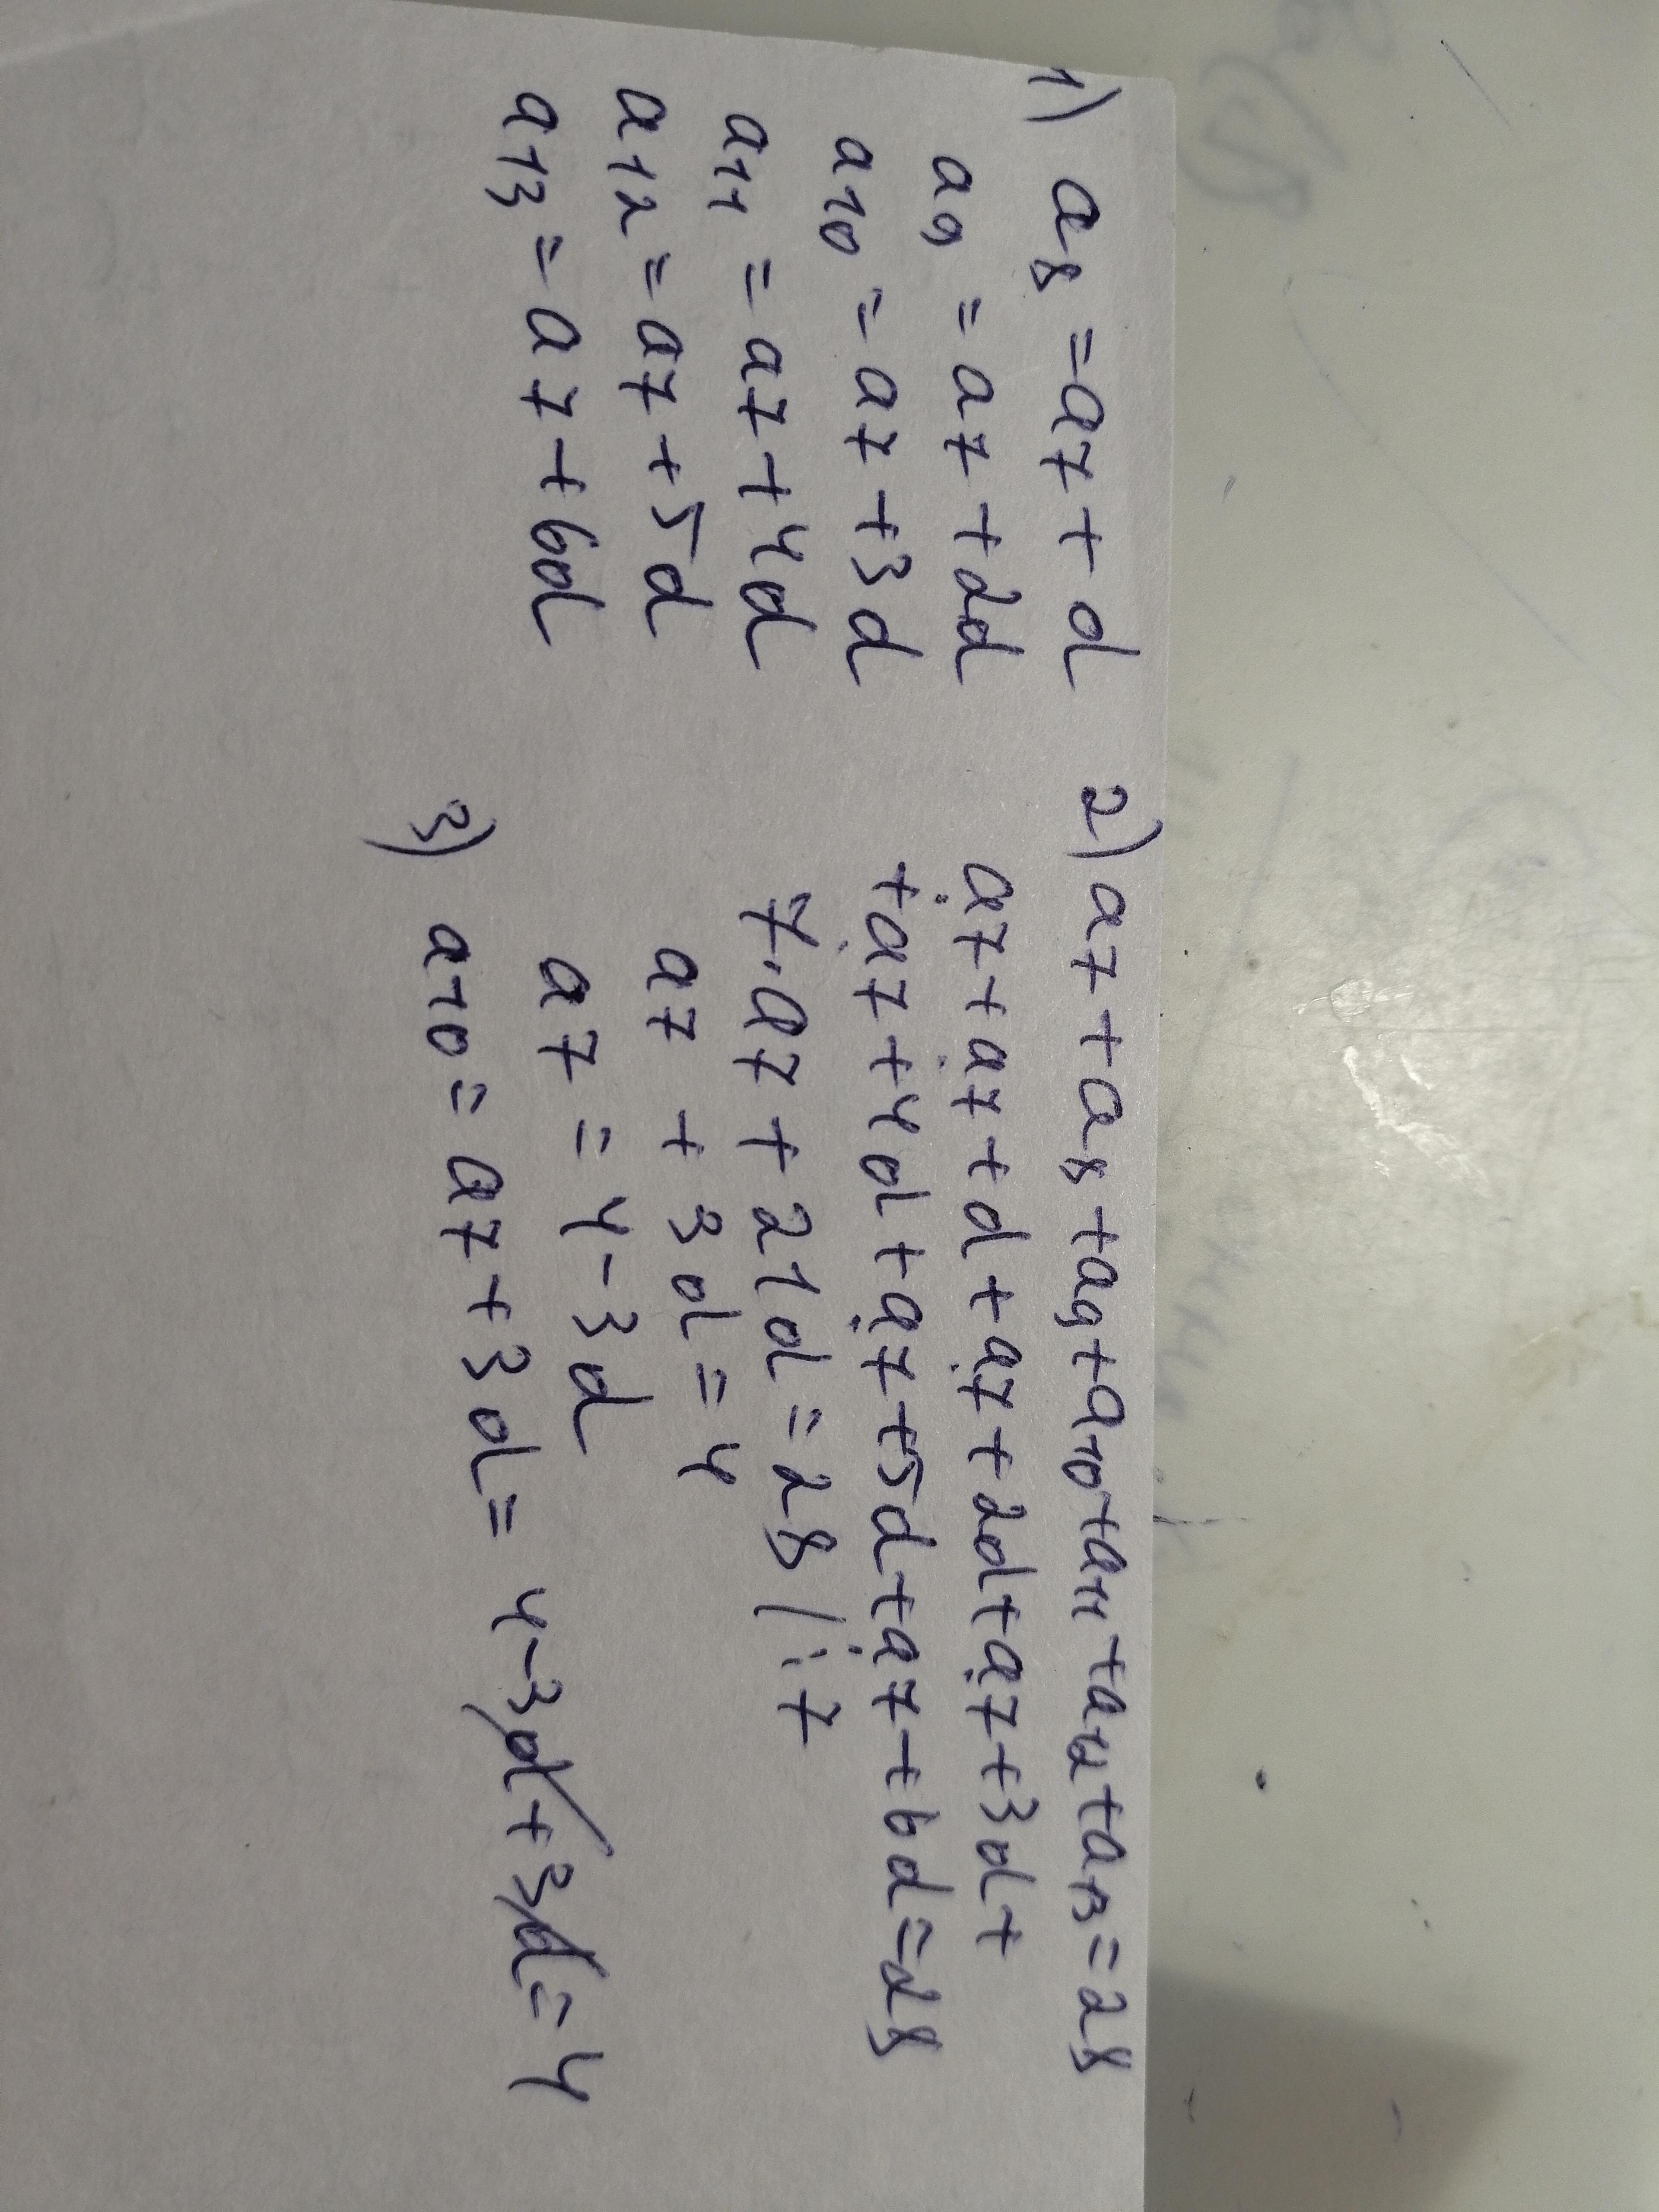 1) a8 = a7 + d
a9 = a7 + 2d
a10 = a7 + 3d
a11 = a7 + 4d
a12 = a7 + 5d
a13 = a7 + 6d
2) a7 + a8 + a9 + a10 + a11 + a12 + a13 = 28
a7 + a7 + d + a7 + 2d + a7 + 3d +
+ a7 + 4d + a7 + 5d + a7 + 6d = 28
7·a7 + 21d = 28 | :7
a7 + 3d = 4
a7 = 4 - 3d
3) a10 = a7 + 3d = 4 - 3d + 3d = 4